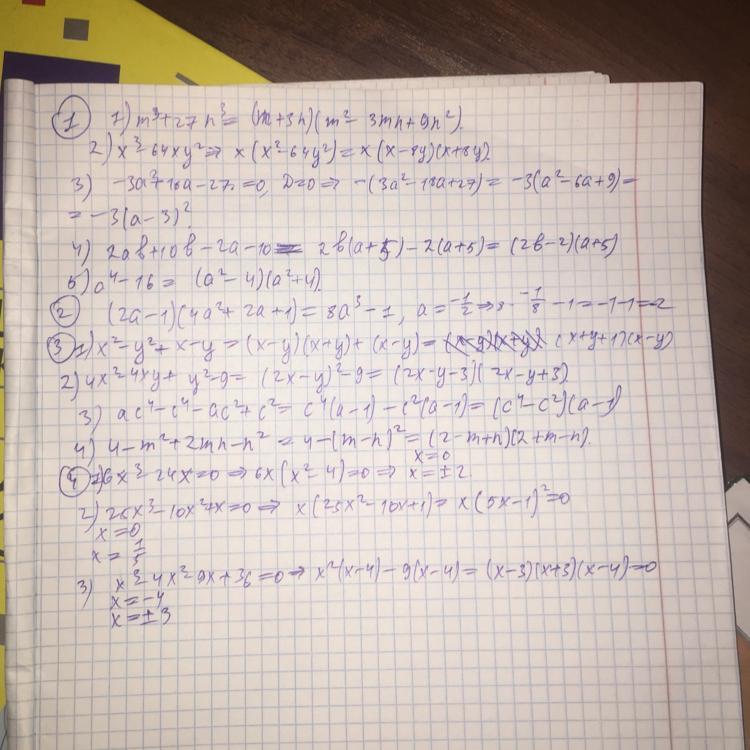 ① 1) m³+27n³= (m+3n)(m²-3mn+9n²).
2) x³-64xy²=> x(x²-64y²)=x(x-8y)(x+8y)
3) -3a²+18a-27=0, D=0 => -(3a²-18a+27)= -3(a²-6a+9)=
= -3(a-3)²
4) 2ab+10b-2a-10= 2b(a+5)-2(a+5)= (2b-2)(a+5)
5) a⁴-16= (a²-4)(a²+4).
② (2a-1)(4a²+2a+1)=8a³-1, a=-1/2 => 8·-1/8-1=-1-1=-2
③ 1) x²-y²+x-y=(x-y)(x+y)+(x-y)= (x+y+1)(x-y)
2) 4x²-4xy+y²-9=(2x-y)²-9=(2x-y-3)(2x-y+3)
3) ac⁴-c⁴-ac²+c²= c⁴(a-1)-c²(a-1)=(c⁴-c²)(a-1)
4) 4-m²+2mn-n²=4-(m-n)²=(2-m+n)(2+m-n).
x=0
④ 1) 6x³-24x=0 => 6x(x²-4)=0 => x=±2
2) 25x³-10x²+x=0 => x(25x²-10x+1)= x(5x-1)²=0
x=0
x=1/5
3) x³-4x²-9x+36=0 => x²(x-4)-9(x-4)=(x-3)(x+3)(x-4)=0
x=-4
x=±3